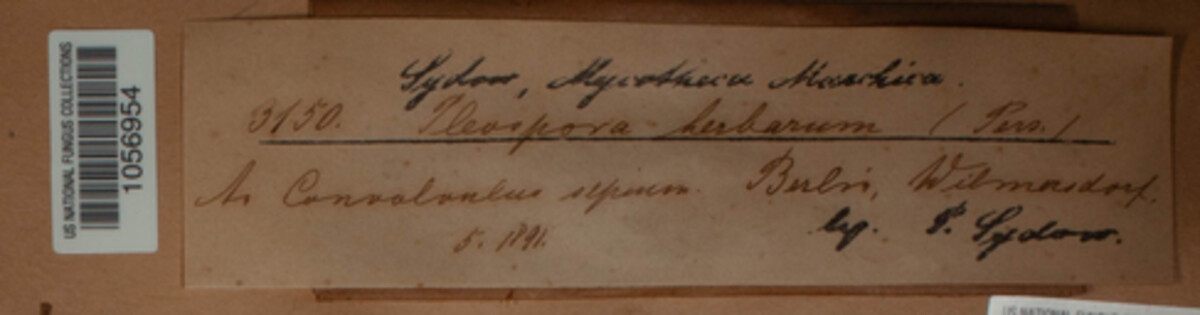 US NATIONAL FUNGUS COLLECTIONS
1056954
Sydow, Mycotheca Marchica.
3150. Pleospora herbarum (Pers.)
Convolvulus sepium. Berlin, Wilmersdorf.
5. 1891.
leg. P. Sydow.
US NATIONAL